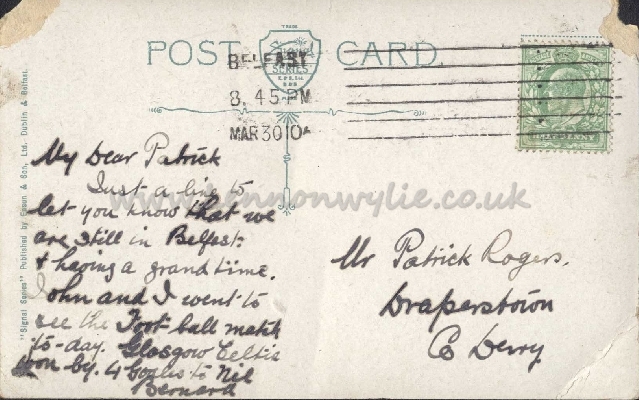 TRADE
POST CARD.
SIGNAL
SERIES
BELFAST
8. 45 PM
MAR 30 10
HALFPENNY
"Signal Series" Published by Eason & Son, Ltd. Dublin & Belfast.
www.lennonwylie.co.uk
My Dear Patrick
Just a line to
let you know that we
are still in Belfast
& having a grand time.
John and I went to
see the Foot ball match
to-day. Glasgow Celtic
won by. 4 Goales to Nil
Bernard
Mr Patrick Rogers.
Draperstown
Co Derry